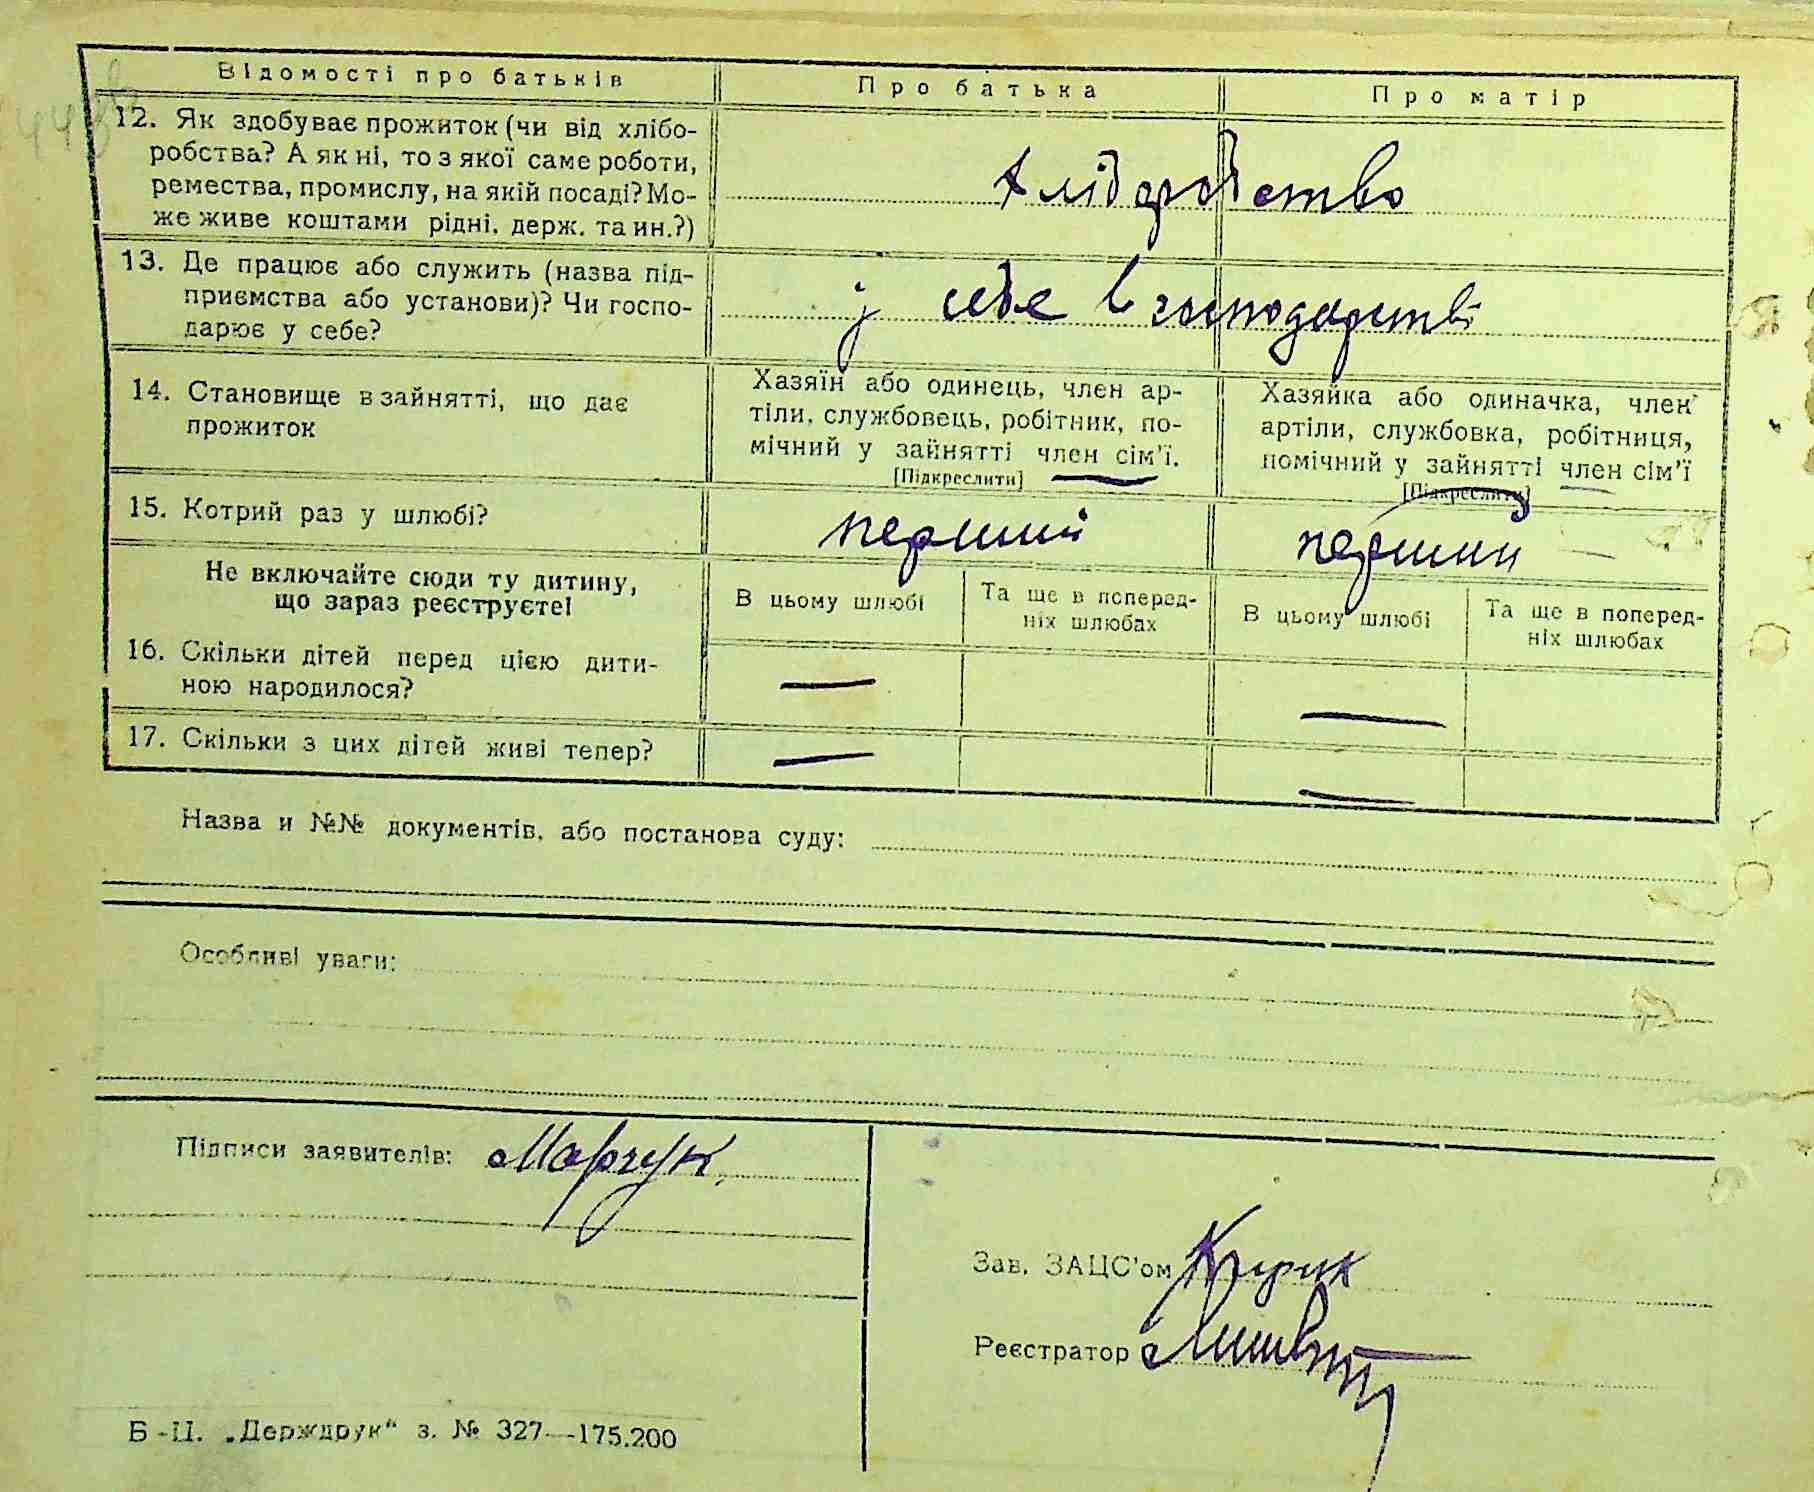 Відомості про батьків
Про батька
Про матір
12. Як здобуває прожиток (чи від хлібо-
робства? А як ні, то з якої саме роботи,
ремества, промислу, на якій посаді? Мо-
же живе коштами рідні, держ. та ин.?)
хліборобство
13. Де працює або служить (назва під-
приємства або установи)? Чи госпо-
дарює у себе?
у себе в господарстві
14. Становище в зайнятті, що дає
прожиток
Хазяїн або одинець, член ар-
тіли, службовець, робітник, по-
мічний у зайнятті член сім'ї.
[Підкреслити]
Хазяйка або одиначка, член
артіли, службовка, робітниця,
помічний у зайнятті член сім'ї
[Підкреслити]
15. Котрий раз у шлюбі?
перший
перший
Не включайте сюди ту дитину,
що зараз реєструєте!
В цьому шлюбі
Та ще в поперед-
ніх шлюбах
В цьому шлюбі
Та ще в поперед-
ніх шлюбах
16. Скільки дітей перед цією дити-
ною народилося?
—
—
17. Скільки з цих дітей живі тепер?
—
—
Назва и №№ документів, або постанова суду:
Особливі уваги:
Підписи заявителів: Марчук
Зав. ЗАЦС'ом
Реєстратор
Б-Ц. „Держдрук" з. № 327—175.200